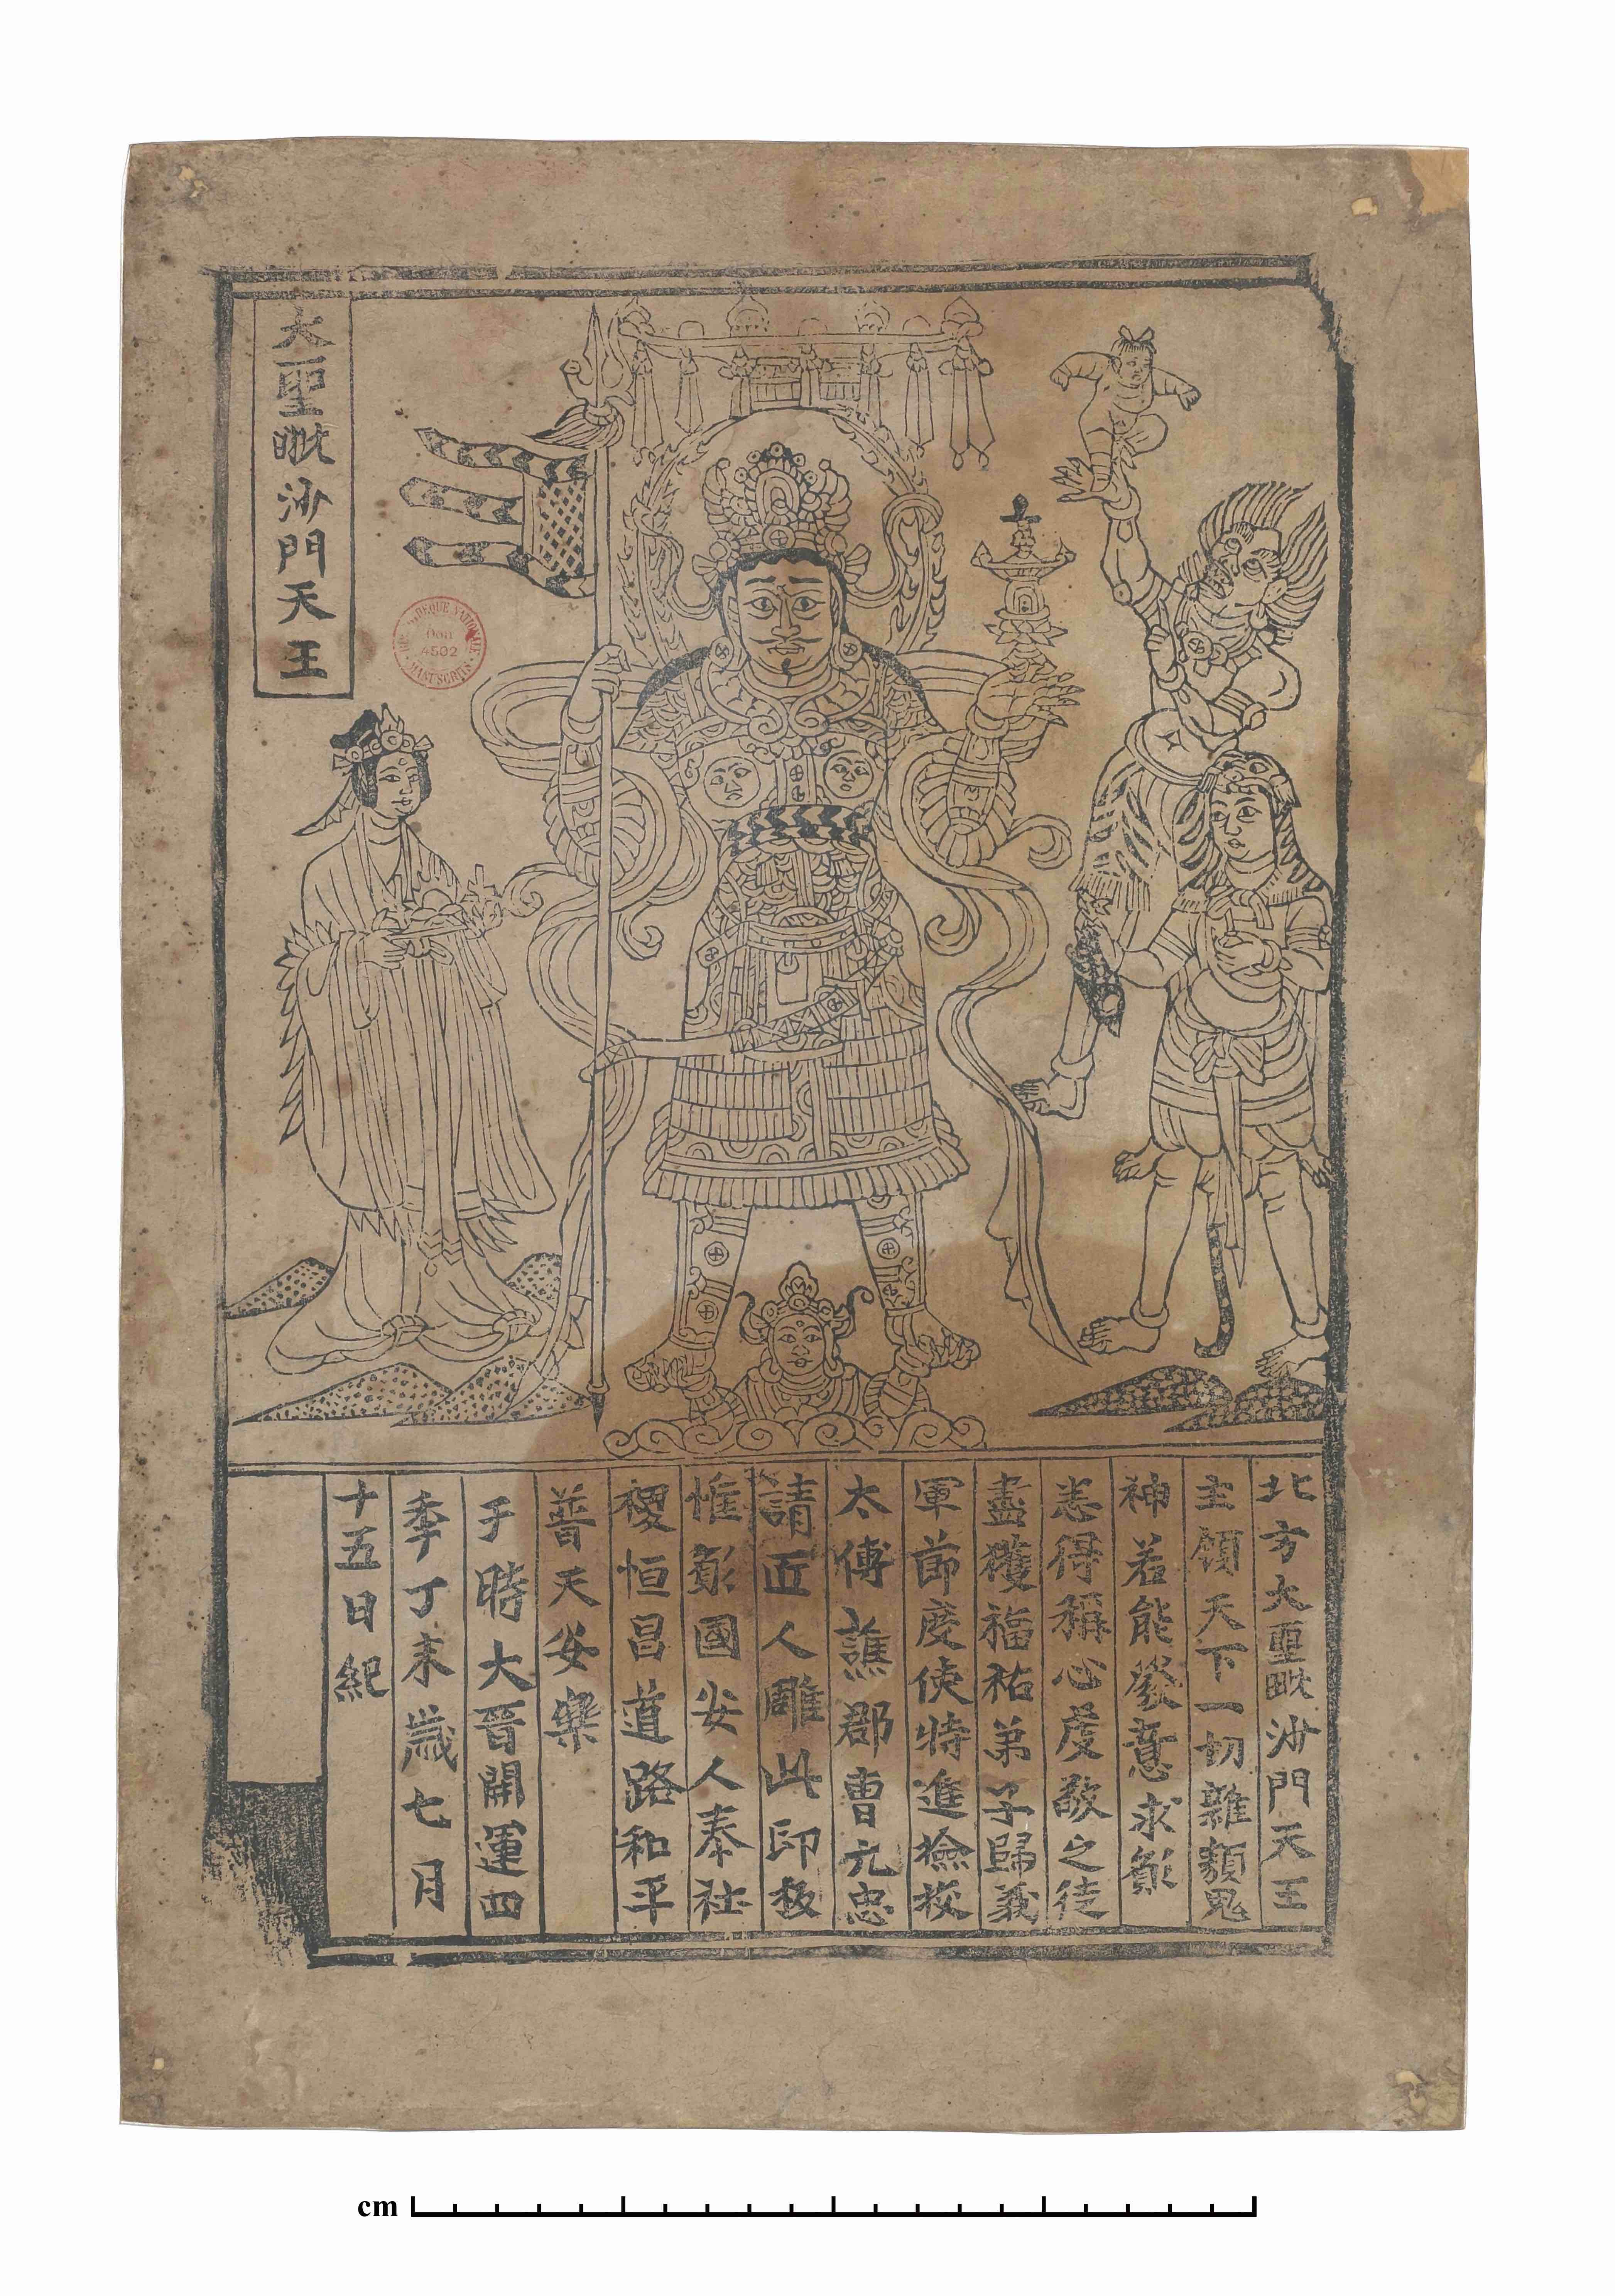 大聖毗沙門天王
BIBLIOTHEQUE NATIONALE
Don
4502
MANUSCRITS
北方大聖毗沙門天王
主領天下一切雜類鬼
神若能發意求願
悉得稱心虔敬之徒
盡獲福祐弟子歸義
軍節度使特進檢校
太傅譙郡曹元忠
請匠人雕此印板
惟願國安人泰社
稷恒昌道路和平
普天安樂
于時大晉開運四
年丁未歲七月
十五日紀
cm